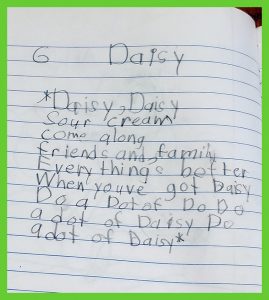 6 Daisy
*Daisy, Daisy
Sour cream
come along
friends and family
Everything's better
When youve got Daisy
Do a Dot of Do Do
a dot of Daisy Do
a dot of Daisy*